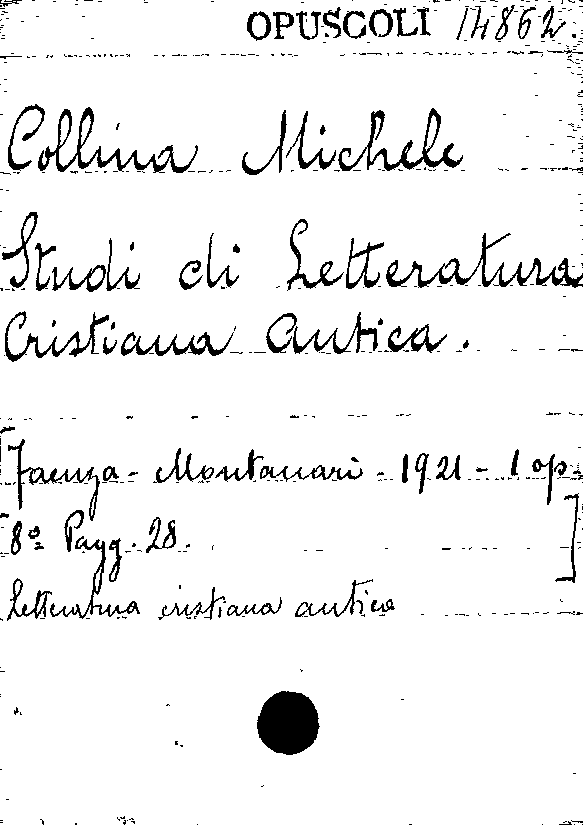 OPUSCOLI 14862.
Collina Michele
Studi di Letteratura
Cristiana Antica.
[Faenza - Montanari - 1921 - 1 op.
[8º Pagg. 28. ]
Letteratura cristiana antica